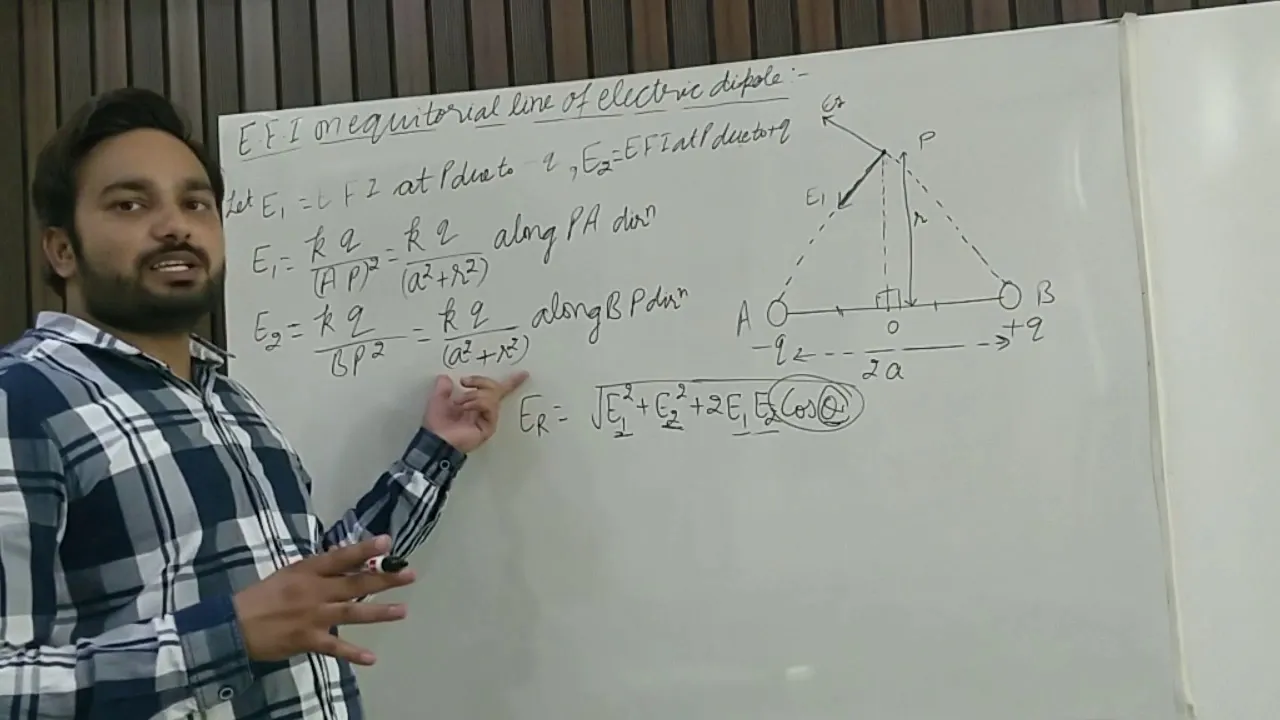 E.F.I on equitorial line of electric dipole:-
Let E₁ = E F I at P due to -q, E₂ = E F I at P due to +q
E₁ = k q/(AP)² = k q/(a²+r²) along PA dirⁿ
E₂ = k q/BP² = k q/(a²+r²) along BP dirⁿ
E_R = √E₁² + E₂² + 2E₁E₂ Cosθ
E₂
P
E₁
r
A
B
O
-q
+q
2a